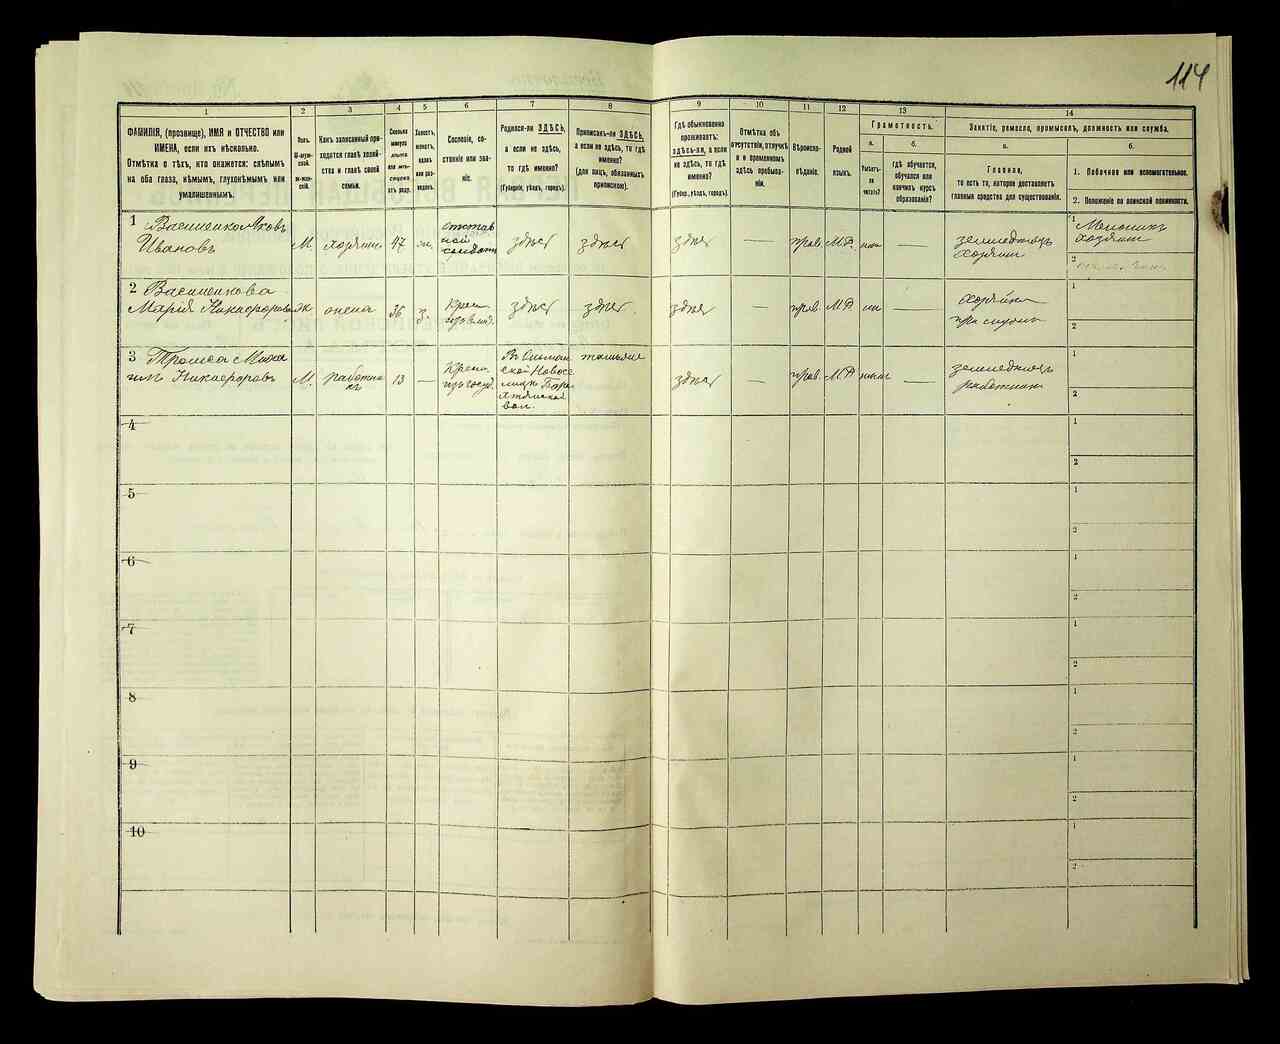 114
1
2
3
4
5
6
7
8
9
10
11
12
13
14
ФАМИЛІЯ, (прозвище), ИМЯ и ОТЧЕСТВО или
ИМЕНА, если ихъ нѣсколько.
Отмѣтка о тѣхъ, кто окажется: слѣпымъ
на оба глаза, нѣмымъ, глухонѣмымъ или
умалишеннымъ.
Полъ.
М-муж-
ской.
Ж-жен-
скій.
Какъ записанный при-
ходится главѣ хозяй-
ства и главѣ своей
семьи.
Сколько
минуло
лѣтъ
или мѣ-
сяцевъ
отъ роду.
Холостъ,
женатъ,
вдовъ
или раз-
веденъ.
Сословіе, со-
стояніе или зва-
ніе.
Родился-ли ЗДѢСЬ,
а если не здѣсь,
то гдѣ именно?
(Губернія, уѣздъ, городъ).
Приписанъ-ли ЗДѢСЬ,
а если не здѣсь, то гдѣ
именно?
(для лицъ, обязанныхъ
припискою).
Гдѣ обыкновенно
проживаетъ:
ЗДѢСЬ-ли, а если
не здѣсь, то гдѣ
именно?
(Губер., уѣздъ, городъ).
Отмѣтка объ
отсутствіи, отлучкѣ
и о временномъ
здѣсь пребыва-
ніи.
Вѣроиспо-
вѣданіе.
Родной
языкъ.
Грамотность.
а.
Умѣетъ-
ли
читать?
б.
гдѣ обучается,
обучался или
кончилъ курсъ
образованія?
Занятіе, ремесло, промыселъ, должность или служба.
а.
Главное,
то есть то, которое доставляетъ
главныя средства для существованія.
б.
1. Побочное или вспомогательное.
2. Положеніе по воинской повинности.
1 Василенко Яковъ
Ивановъ
М
хозяинъ
47
ж.
отстав
ной
солдатъ
здѣсь
здѣсь
здѣсь
—
прав.
М.Р.
земледѣлецъ
хозяинъ
1
Мельникъ
хозяинъ
2
2 Василенкова
Марія Никифорова
Ж
жена
36
з.
Крест.
здѣсь
здѣсь
здѣсь
—
прав.
М.Р.
хозяйка
1
2
3 Трошса Миха
илъ Никифоровъ
М.
работни
къ
13
—
Крест.
изъ госуд.
ской Новосе
лицы Бар
ятинской
вол.
тамъже
здѣсь
—
прав.
М.Р.
—
земледѣлецъ
работникъ
1
2
4
1
2
5
1
2
6
1
2
7
1
2
8
1
2
9
1
2
10
1
2